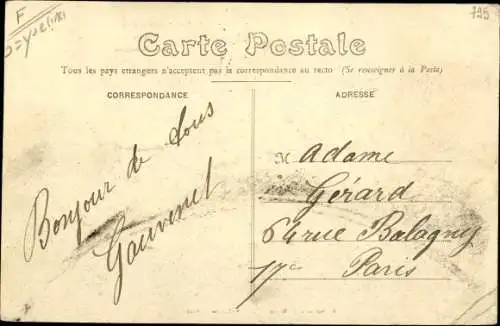 F
795
Carte Postale
Tous les pays etrangers n'acceptent pas la correspondance au recto (Se renseigner à la Poste)
CORRESPONDANCE
ADRESSE
Bonjour de tous
Gauvenet
M Adame
Gérard
64 rue Balagny
17e
Paris